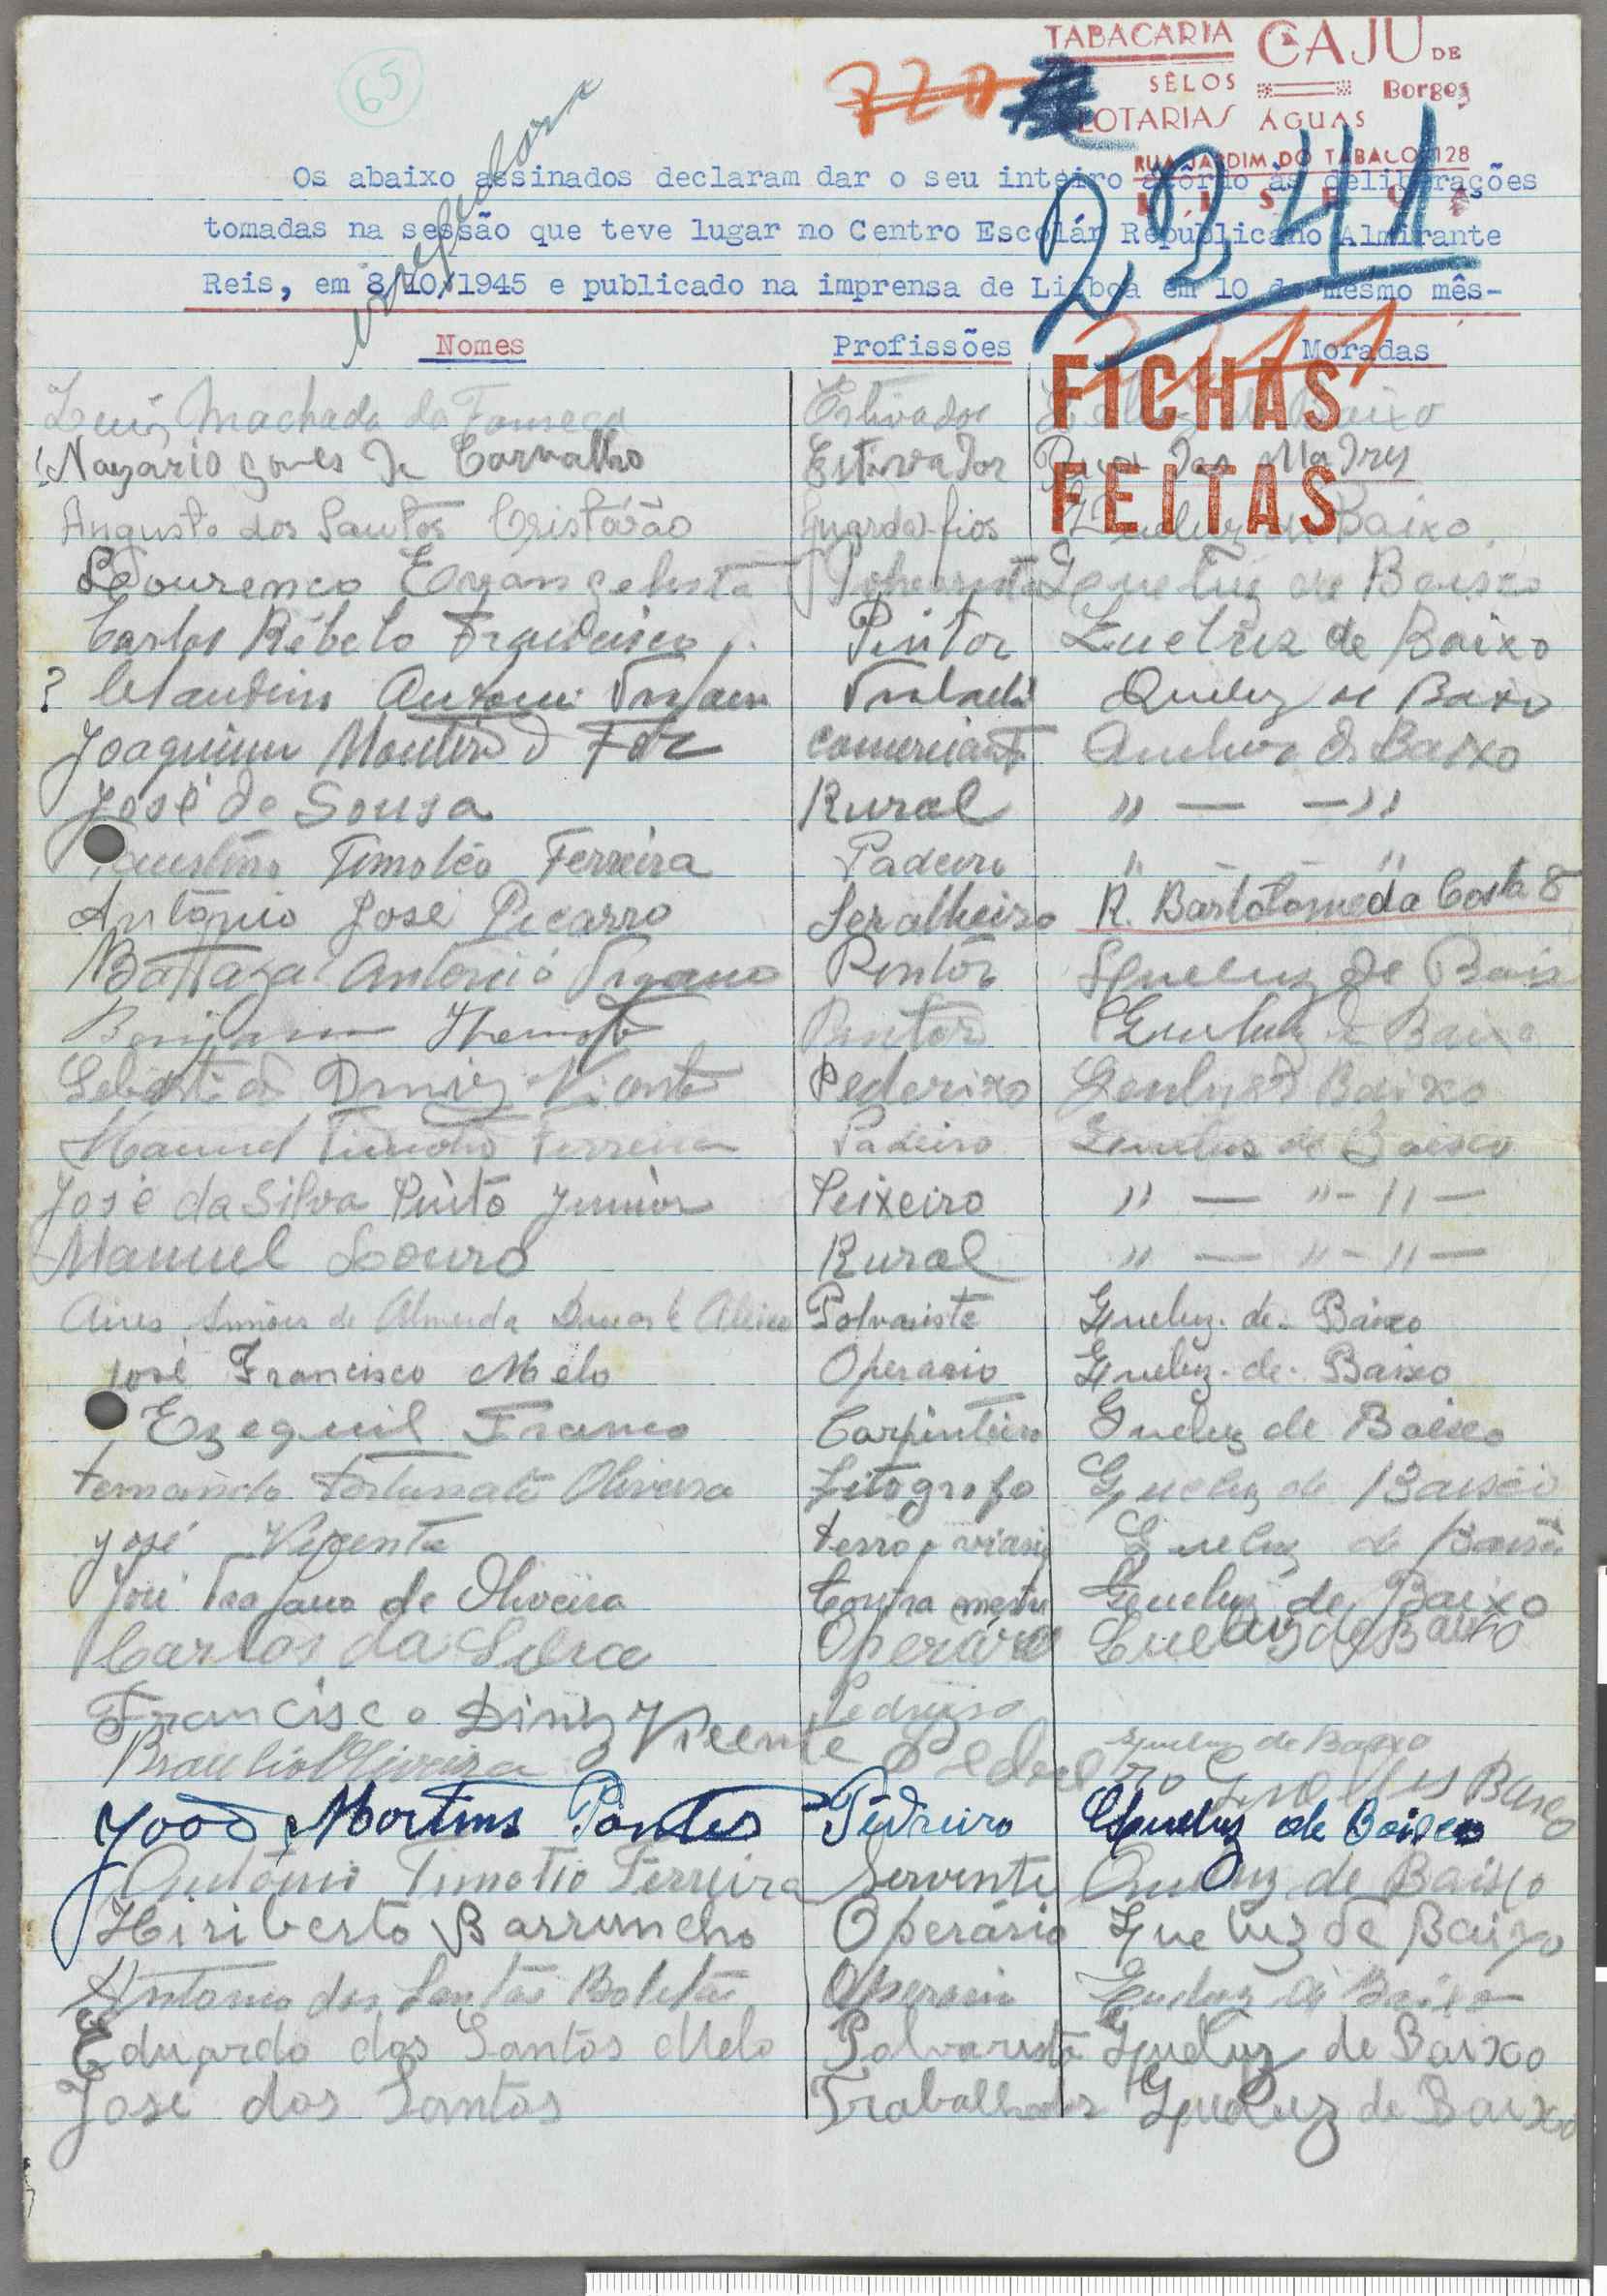 65
720
TABACARIA CAJU DE
SÊLOS Borges
LOTARIAS ÁGUAS
RUA JARDIM DO TABACO 128
LISBOA
2241
Os abaixo assinados declaram dar o seu inteiro acôrdo às deliberações
tomadas na sessão que teve lugar no Centro Escolár Republicano Almirante
Reis, em 8/10/1945 e publicado na imprensa de Lisboa em 10 do mesmo mês-
2241
Nomes Profissões Moradas
FICHAS
FEITAS
Luis Machado da Fonseca Estivador Queluz de Baixo
Nazario Gomes de Carvalho Estivador Rua das Madres
Augusto dos Santos Cristóvão Guarda-fios Queluz de Baixo
Lourenco Evangelista Polvorista Queluz de Baixo
Carlos Rebelo Francisco Pintor Queluz de Baixo
? Claudino Antonio Queluz de Baixo
Joaquim Monteiro Comerciante Queluz de Baixo
José de Sousa Rural " — — "
Faustino Timoteo Ferreira Padeiro " - - "
António José Picarro Seralheiro R. Bartolomeu da Costa 8
Baltazar Antonio Pintor Queluz de Baixo
Benjamim Pintor Queluz de Baixo
Sebastião Diniz Vicente Pedreiro Queluz de Baixo
Manuel Timotio Ferreira Padeiro Queluz de Baixo
José da Silva Pinto Junior Peixeiro " — " - " —
Manuel Louro Rural " — " - " —
Aires Simões de Almeida Polvarista Queluz de Baixo
José Francisco Melo Operario Queluz de Baixo
Ezequiel Franco Carpinteiro Queluz de Baixo
Fernando Fortunato Oliveira Litografo Queluz de Baixo
José Vicente Ferro viario Queluz de Baixo
José Trajano de Oliveira Contra mestre Queluz de Baixo
Carlos da Silva Operário Queluz de Baixo
Francisco Diniz Vicente Pedreiro Queluz de Baixo
Braulio Oliveira Pedreiro Queluz Baixo
João Martins Pontes Pedreiro Queluz de Baixo
António Timotio Ferreira Servente Queluz de Baixo
Hiriberto Barruncho Operário Queluz de Baixo
Antonio dos Santos Operario Queluz de Baixo
Eduardo dos Santos Melo Polvarista Queluz de Baixo
José dos Santos Trabalhador Queluz de Baixo